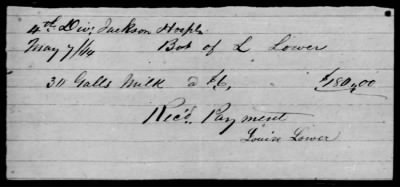 4th Div: Jackson Hospl.
May 7/64 Bot of L Lower
30 Galls Milk a $6, $180,00
Rec'd Payment
Louisa Lower